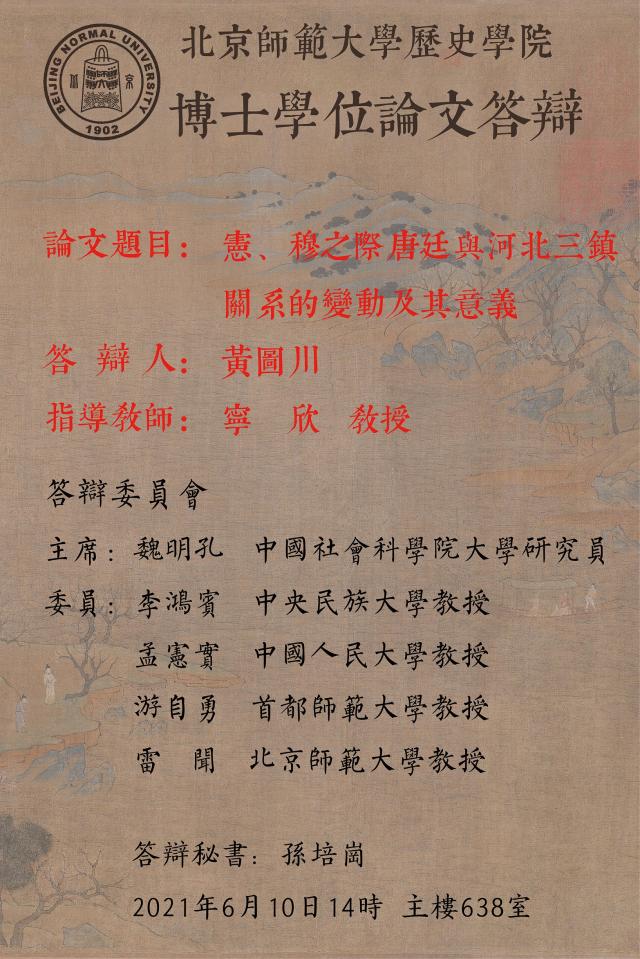 BEIJING NORMAL UNIVERSITY
1902
北京師範大學歷史學院
博士學位論文答辯
論文題目：憲、穆之際唐廷與河北三鎮
關系的變動及其意義
答辯人：黃圖川
指導教師：寧欣 教授
答辯委員會
主席：魏明孔 中國社會科學院大學研究員
委員：李鴻賓 中央民族大學教授
孟憲實 中國人民大學教授
游自勇 首都師範大學教授
雷聞 北京師範大學教授
答辯秘書：孫培崗
2021年6月10日14時 主樓638室